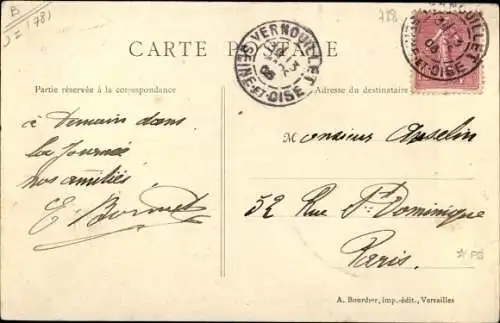 B
J = (78)
788
CARTE POSTALE
VERNOUILLET
SEINE-ET-OISE
Partie réservée à la correspondance
Adresse du destinataire
à Demain dans
la Journée
nos amitiés
Monsieur Anselin
52 Rue St Dominique
Paris.
* PS
A. Bourdier, imp.-édit., Versailles